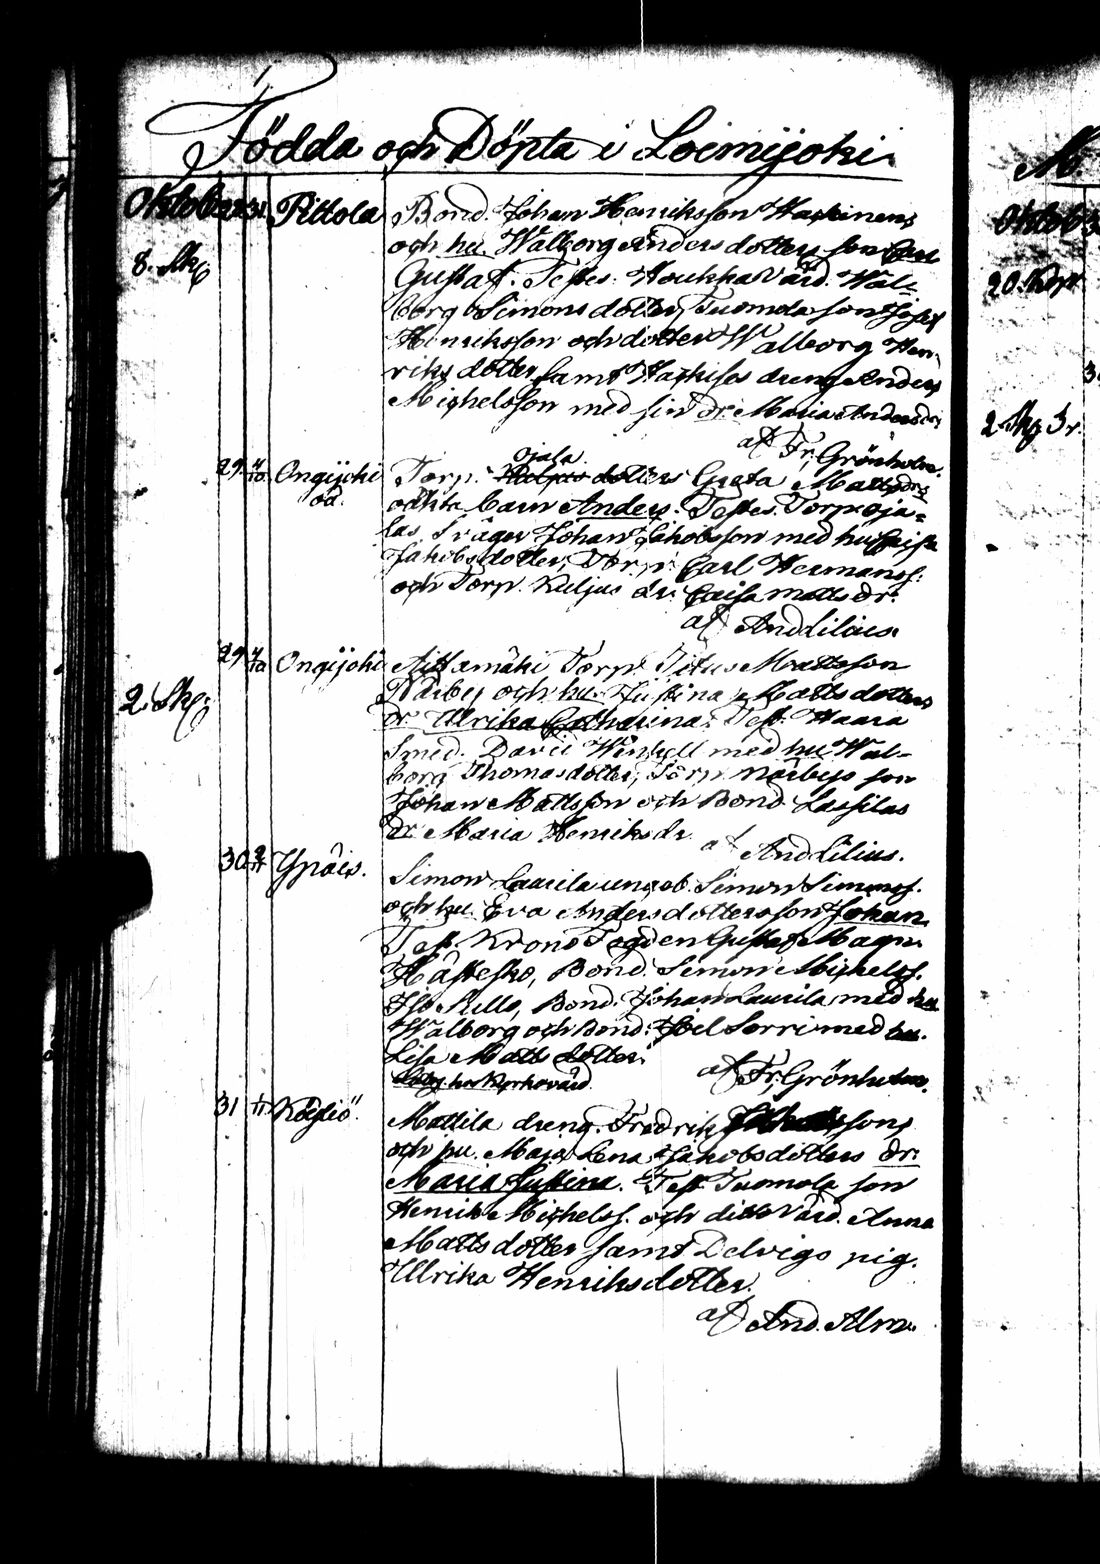 Födda och Döpta i Loimijoki.
Oktober 31. Pittola Bond. Johan Henriksson
och hu. Walborg Anders dotters son Carl
8. Sk.
Gustaf. Testes. Värd. Wal-
borg Simons dotter, Tuomola son Josef
Henriksson och dotter Walborg Hen-
riks dotter samt dreng Anders
Michelsson med sin dr. Maria Anders dr
af Fr. Grönholm.
ojala
29. Ongijoki Torp. dotters Greta Matts drs
oä. oäkta barn Anders. Testes. Torp. oja-
las Svåger Johan Jakobsson med hu Caisa
Jakobs dotter, Torp. Carl Hermanss.
och Torp. Kuljus dr. Caisa Matts dr.
af And Lilius.
29 Ongijoki Torp. Titus Mattsson
Närby och hu. Justina Matts dotters
2. Sk.
dr. Ulrika Catharina. Test. Haara
Smed. David med hu Wal-
borg Thomas dotter, Torp. Närbys son
Johan Mattsson och Bond Lassilas
dr. Maria Henriks dr.
af And Lilius.
30 Ypäis. Simon Laurila ungob. Simon Simonss.
och hu. Eva Anders dotters son Johan
Test. Krono Fogden Gustaf Magn.
Hästesko, Bond. Simon Michelss.
Iso Kello, Bond. Johan Laurila med hu
Walborg och Bond. Joel Sorri med hu.
Lisa Matts dotter.
af Fr. Grönholm.
31 Mattila dreng. Fredrik
och hu. Maja Lena Jakobs dotters dr.
Maria Justina. Test. Tuomola son
Henrik Michelss. och ditto Värd. Anna
Matts dotter samt Delvigs pig.
Ulrika Henriks dotter.
af And. Alm.
Oktob
20. Kop
2 Sk. Sr.